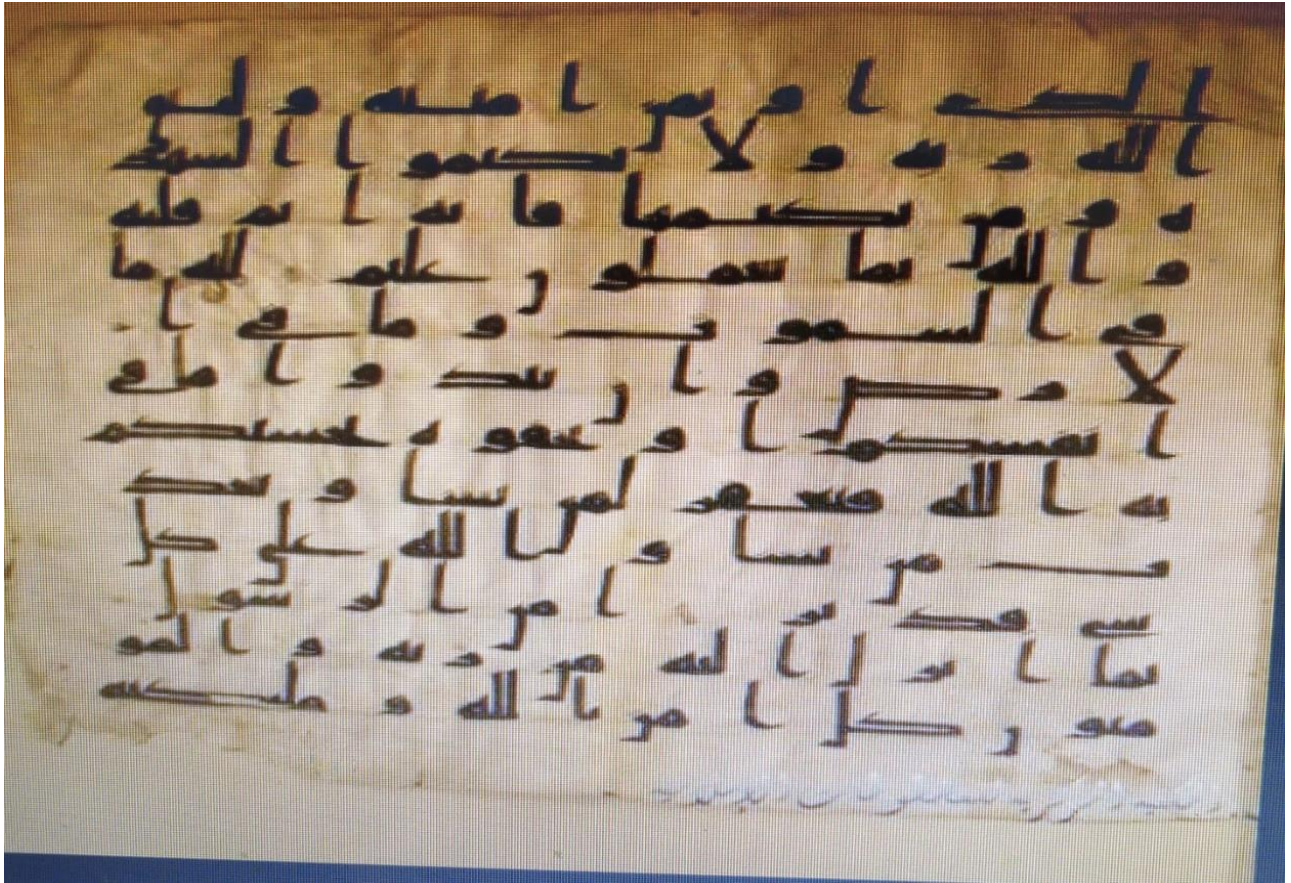 الذى اوتمن امنته وليتق
الله ربه ولا تكتموا الشهد
ه ومن يكتمها فانه اثم قلبه
والله بما تعملون عليم لله ما
فى السموت وما فى ا
لارض وان تبدوا ما فى
انفسكم او تخفوه يحسبكم
به الله فيغفر لمن يشا ويعذ
ب من يشا والله على كل
شى قدير امن الرسول
بما انزل اليه من ربه والمو
منون كل امن بالله وملئكته